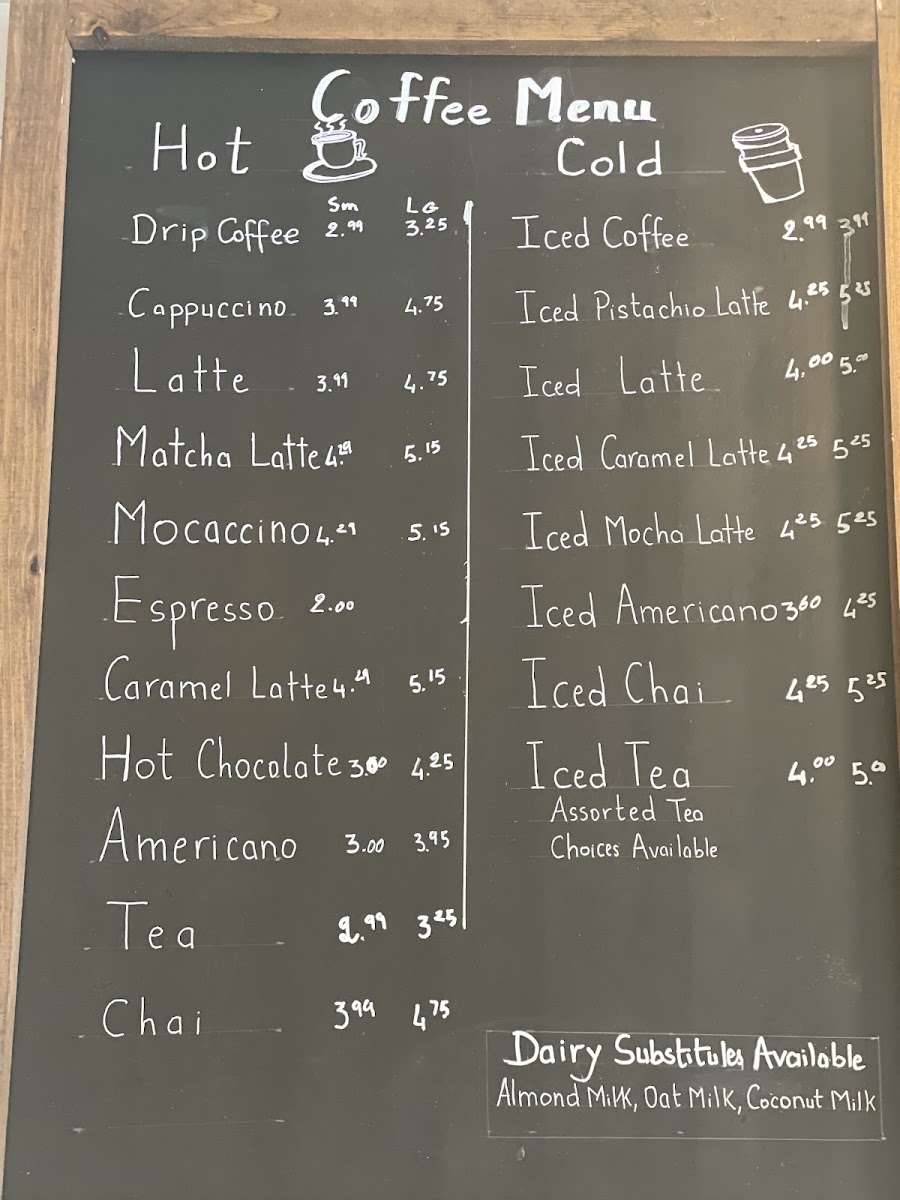 Coffee Menu
Hot
Sm LG
Drip Coffee 2.99 3.25
Cappuccino 3.99 4.75
Latte 3.99 4.75
Matcha Latte 4.29 5.15
Mocaccino 4.29 5.15
Espresso 2.00
Caramel Latte 4.29 5.15
Hot Chocolate 3.60 4.25
Americano 3.00 3.95
Tea 2.99 3.25
Chai 3.99 4.75
Cold
Iced Coffee 2.99 3.99
Iced Pistachio Latte 4.25 5.25
Iced Latte 4.00 5.00
Iced Caramel Latte 4.25 5.25
Iced Mocha Latte 4.25 5.25
Iced Americano 3.60 4.25
Iced Chai 4.25 5.25
Iced Tea 4.00 5.00
Assorted Tea
Choices Available
Dairy Substitules Available
Almond Milk, Oat Milk, Coconut Milk